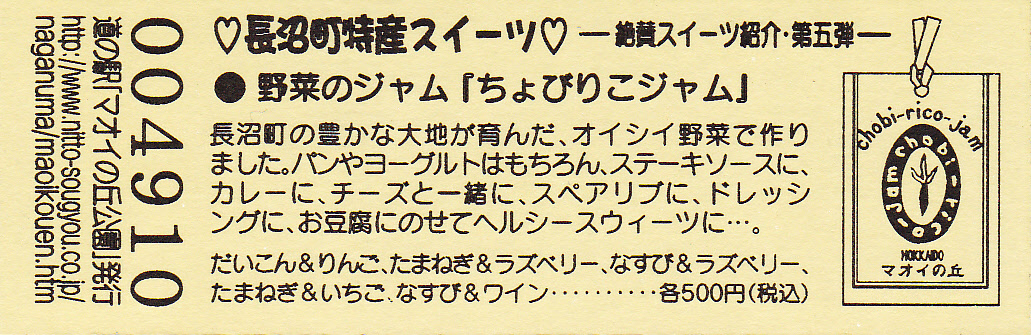 ♡長沼町特産スイーツ♡ ー絶賛スイーツ紹介・第五弾ー
● 野菜のジャム『ちょびりこジャム』
長沼町の豊かな大地が育んだ、オイシイ野菜で作り
ました。パンやヨーグルトはもちろん、ステーキソースに、
カレーに、チーズと一緒に、スペアリブに、ドレッシ
ングに、お豆腐にのせてヘルシースウィーツに…。
だいこん&りんご、たまねぎ&ラズベリー、なすび&ラズベリー、
たまねぎ&いちご、なすび&ワイン‥‥‥‥‥各500円(税込)
chobi-rico-jam
chobi-rico-jam
HOKKAIDO
マオイの丘
004910
道の駅「マオイの丘公園」発行
http://www.nitto-sougyou.co.jp/
naganuma/maoikouen.htm